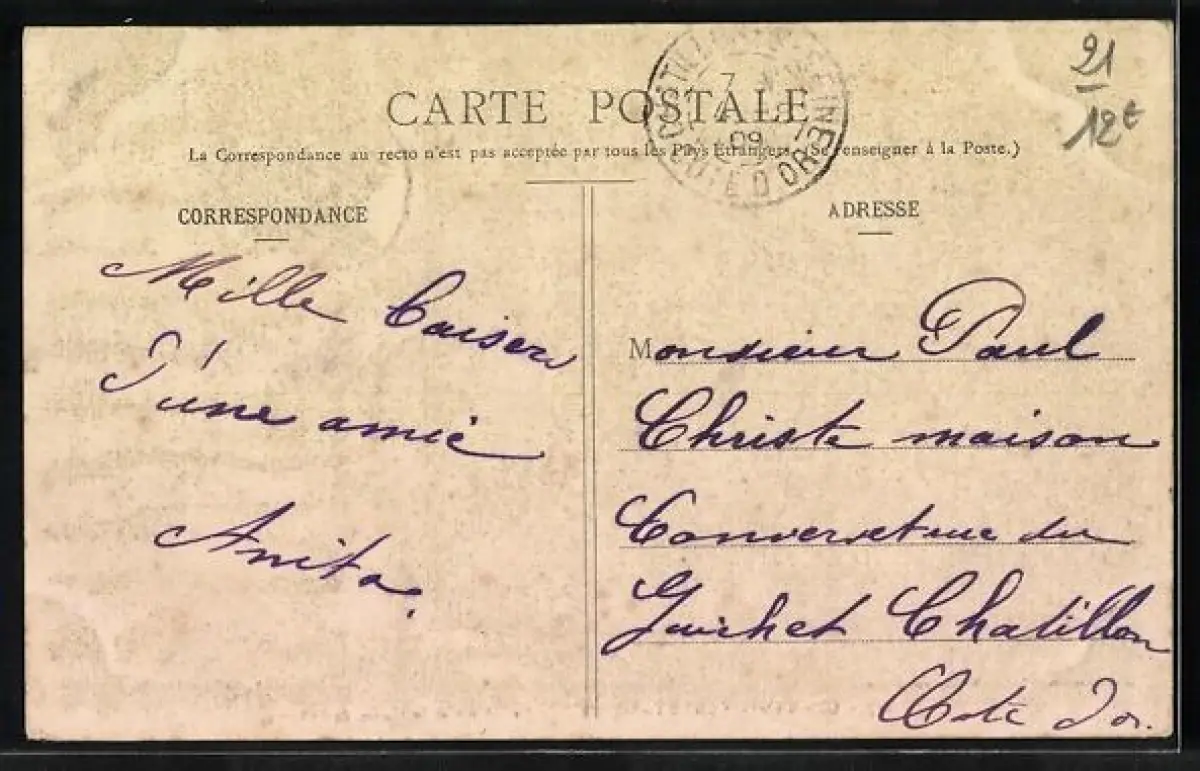 21
12€
CARTE POSTALE
La Correspondance au recto n'est pas acceptée par tous les Pays Étrangers. (Se renseigner à la Poste.)
CHATILLON SEINE
7
09
COTE D'OR
CORRESPONDANCE
Mille Baisers
d'une amie
Anita.
ADRESSE
Monsieur Paul
Christe maison
rue du
Guichet Chatillon
Cote d'or.